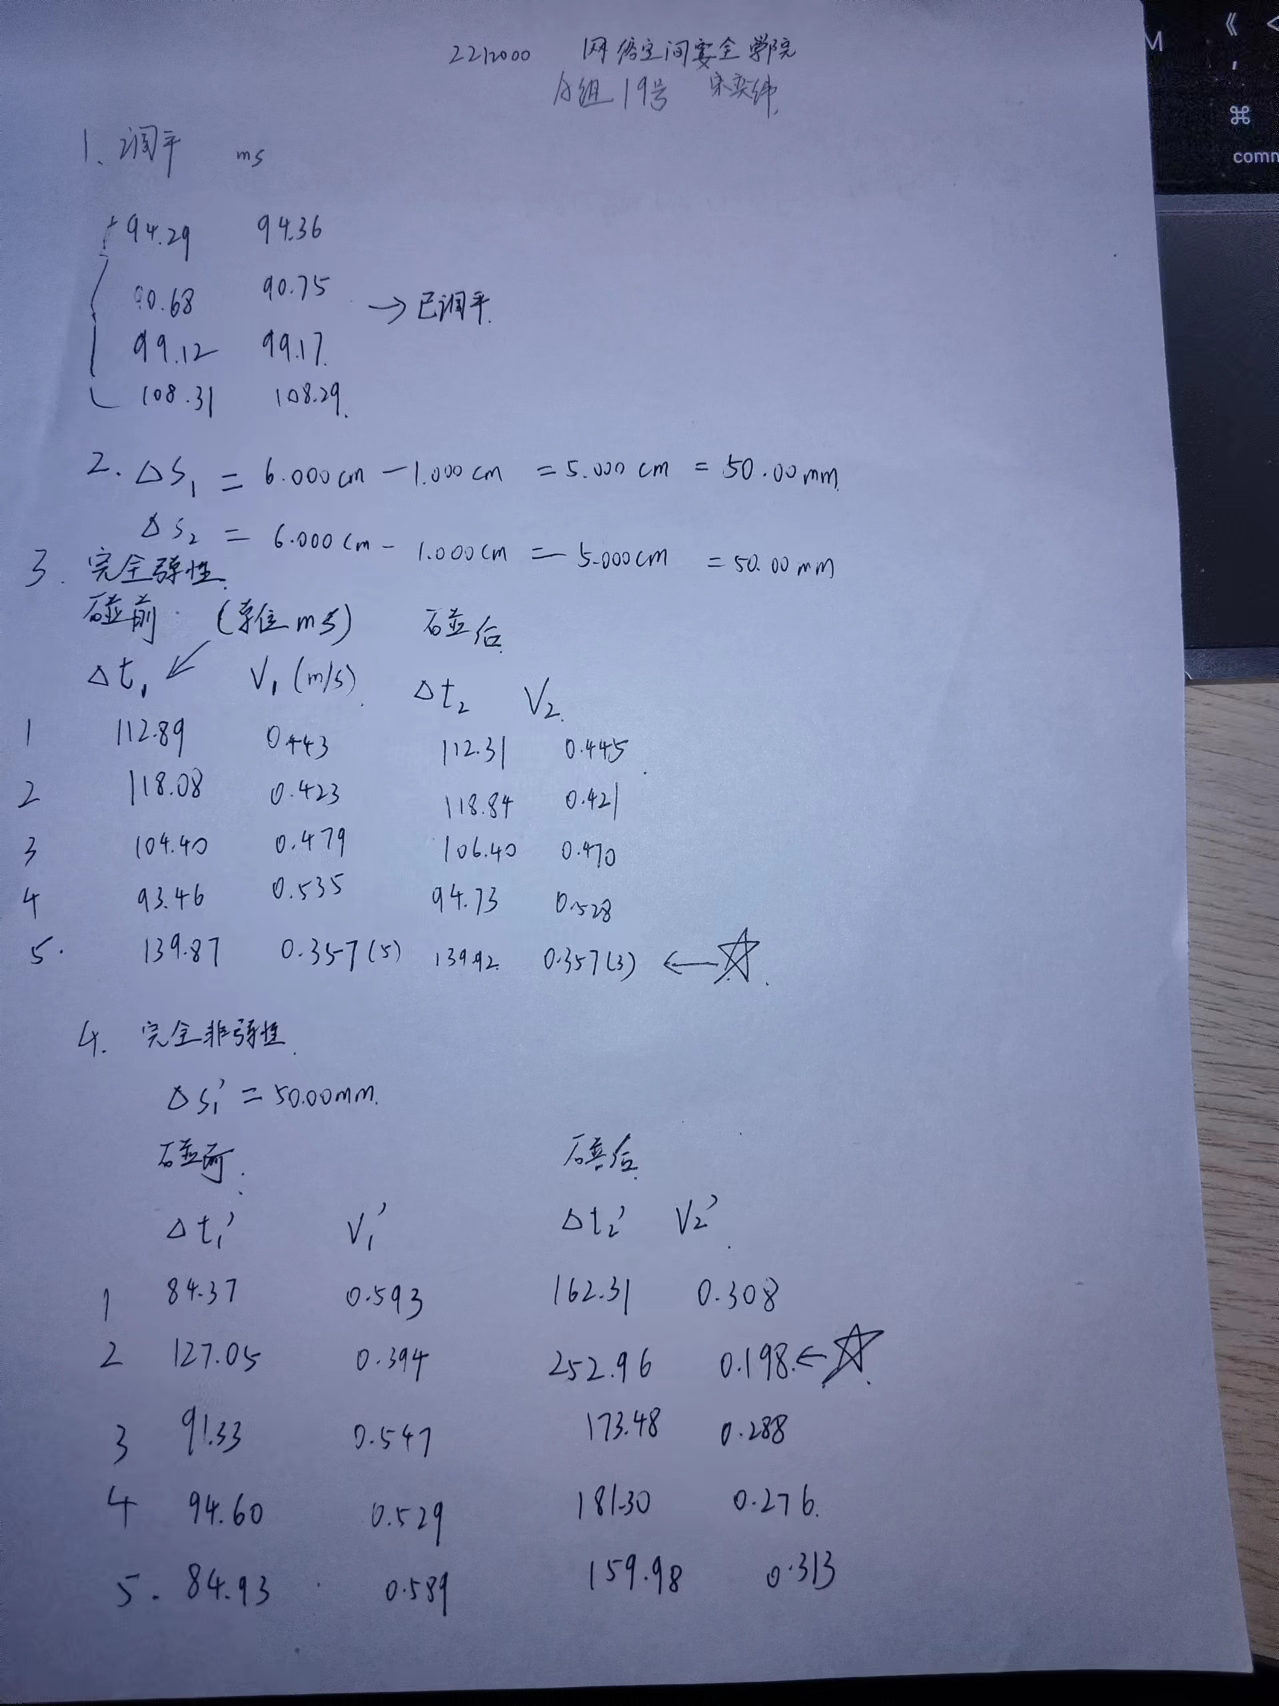 2212000 网络空间安全学院
A组 19号 宋奕纬
1、调平 ms
94.29 94.36
90.68 90.75 → 已调平.
99.12 99.17.
108.31 108.29.
2. ΔS₁ = 6.000cm - 1.000cm = 5.000cm = 50.00mm
ΔS₂ = 6.000cm - 1.000cm = 5.000cm = 50.00mm
3. 完全弹性.
碰前 (单位ms) 碰后
Δt₁ V₁(m/s) Δt₂ V₂
1 112.89 0.443 112.31 0.445
2 118.08 0.423 118.84 0.421
3 104.40 0.479 106.40 0.470
4 93.46 0.535 94.73 0.528
5. 139.87 0.357(5) 139.92 0.357(3) ← ☆
4. 完全非弹性
ΔS₁' = 50.00mm.
碰前 碰后
Δt₁' V₁' Δt₂' V₂'
1 84.37 0.593 162.31 0.308
2 127.05 0.394 252.96 0.198 ← ☆
3 91.33 0.547 173.48 0.288
4 94.60 0.529 181.30 0.276.
5. 84.93 0.589 159.98 0.313
M 《 <
,
⌘
comm